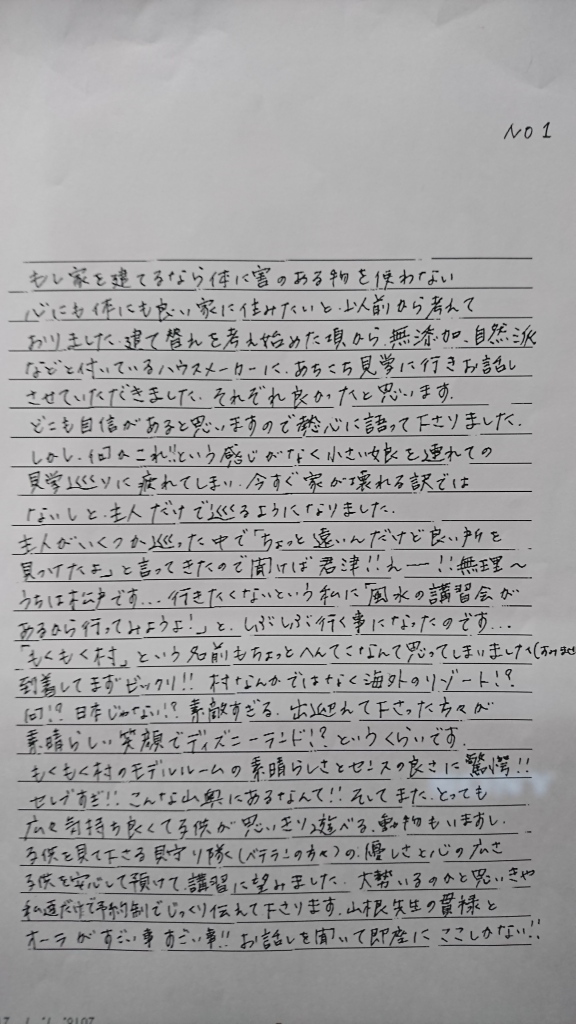 NO 1
もし家を建てるなら体に害のある物を使わない
心にも体にも良い家に住みたいと、以前から考えて
おりました。建て替えを考え始めた頃から、無添加、自然派
などと付いているハウスメーカーに、あちこち見学に行きお話し
させていただきました。それぞれ良かったと思います。
どこも自信があると思いますので熱心に語って下さりました。
しかし、何かこれ!!という感じがなく小さい娘を連れての
見学巡りに疲れてしまい、今すぐ家が壊れる訳では
ないしと、主人だけで巡るようになりました。
主人がいくつか巡った中で「ちょっと遠いんだけど良い所を
見つけたよ」と言ってきたので聞けば君津!!えー!!無理〜
うちは松戸です...行きたくないという私に「風水の講習会が
あるから行ってみようよ!」と、しぶしぶ行く事になったのです...
「もくもく村」という名前もちょっとへんてこなんて思ってしまいました(すみませ
到着してまずビックリ!! 村なんかではなく海外のリゾート!?
何!? 日本じゃない!? 素敵すぎる。出迎えて下さった方々が
素晴らしい笑顔でディズニーランド!? というくらいです。
もくもく村のモデルルームの素晴らしさとセンスの良さに驚愕!!
セレブすぎ!! こんな山奥にあるなんて!! そしてまた、とっても
広々気持ち良くて子供が思いきり遊べる、動物もいますし、
子供を見て下さる見守り隊(ベテランの方々)の、優しさと心の広さ
子供を安心して預けて、講習に望みました。大勢いるのかと思いきや
私達だけで予約制でじっくり伝えて下さります。山根先生の貫禄と
オーラがすごい事すごい事!! お話しを聞いて即座に ここしかない!!